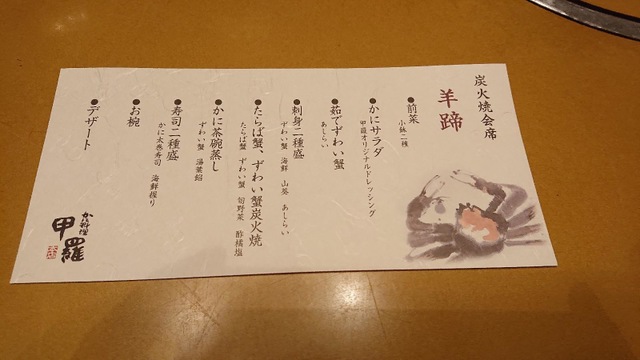 炭火焼会席
羊蹄
●前菜
小鉢二種
●かにサラダ
甲羅オリジナルドレッシング
●茹でずわい蟹
あしらい
●刺身二種盛
ずわい蟹 海鮮 山葵 あしらい
●たらば蟹、ずわい蟹炭火焼
たらば蟹 ずわい蟹 旬野菜 酢橘塩
●かに茶碗蒸し
ずわい蟹 湯葉餡
●寿司二種盛
かに太巻寿司 海鮮握り
●お椀
●デザート
かに料理
甲羅